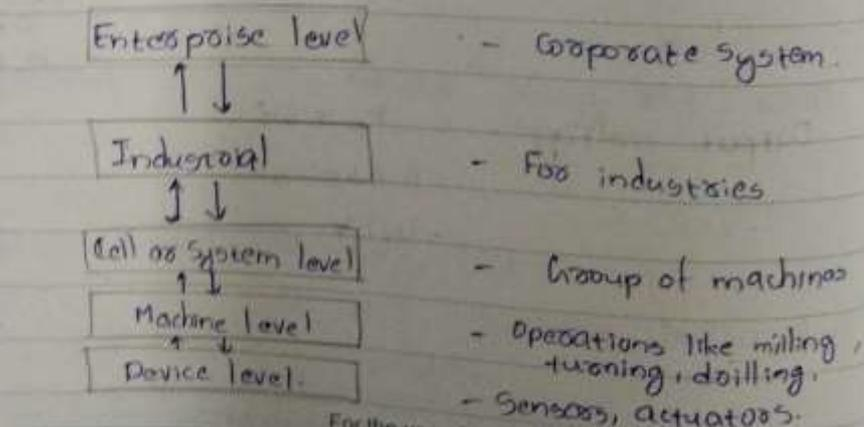 Enterprise level - Corporate system.
Industrial - For industries
Cell or System level - Group of machines
Machine level - Operations like milling,
turning, drilling.
Device level. - Sensors, actuators.